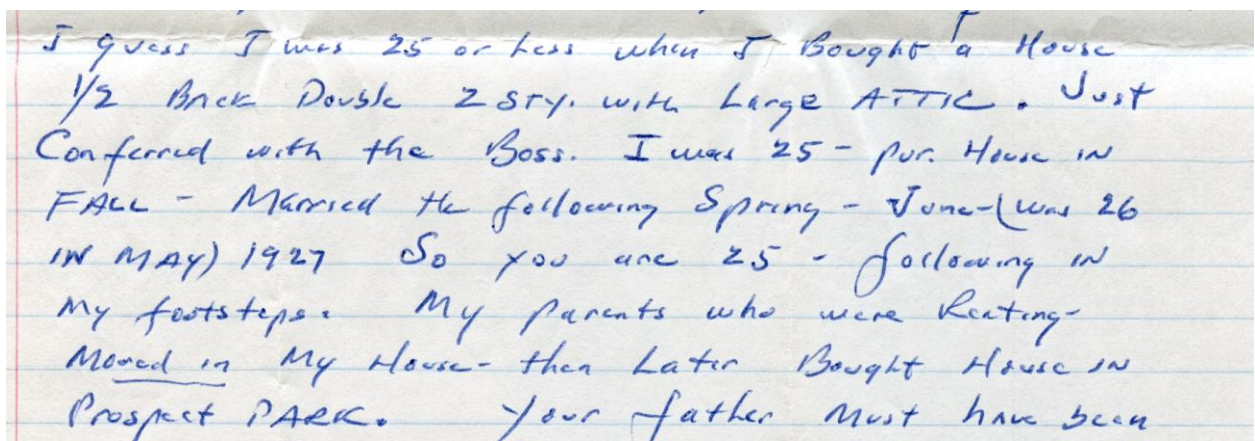 I guess I was 25 or Less when I Bought a House
1/2 Brick Double 2 Sty. with Large ATTIC. Just
Conferred with the Boss. I was 25 - pur. House in
FALL - Married the following Spring - June - (was 26
IN MAY) 1927 So you are 25 - following IN
My footsteps. My parents who were Renting -
Moved in My House - then Later Bought House IN
Prospect PARK. Your father Must have been